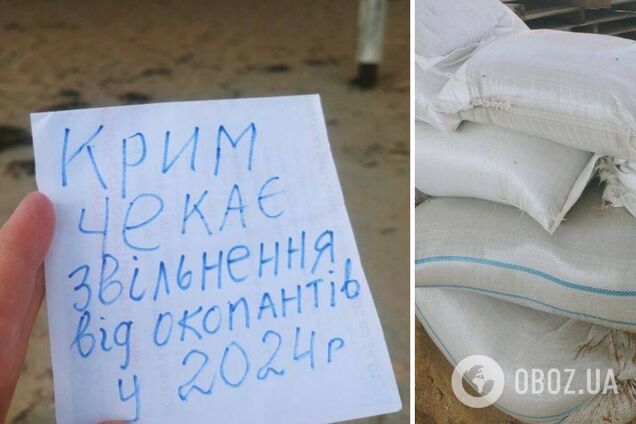 Крим
чекає
звільнення
від окопантів
у 2024р
OBOZ.UA